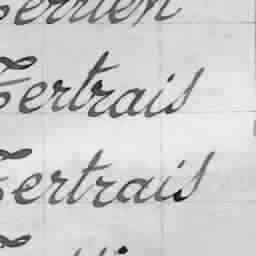 Terrien
Tertrais
Tertrais